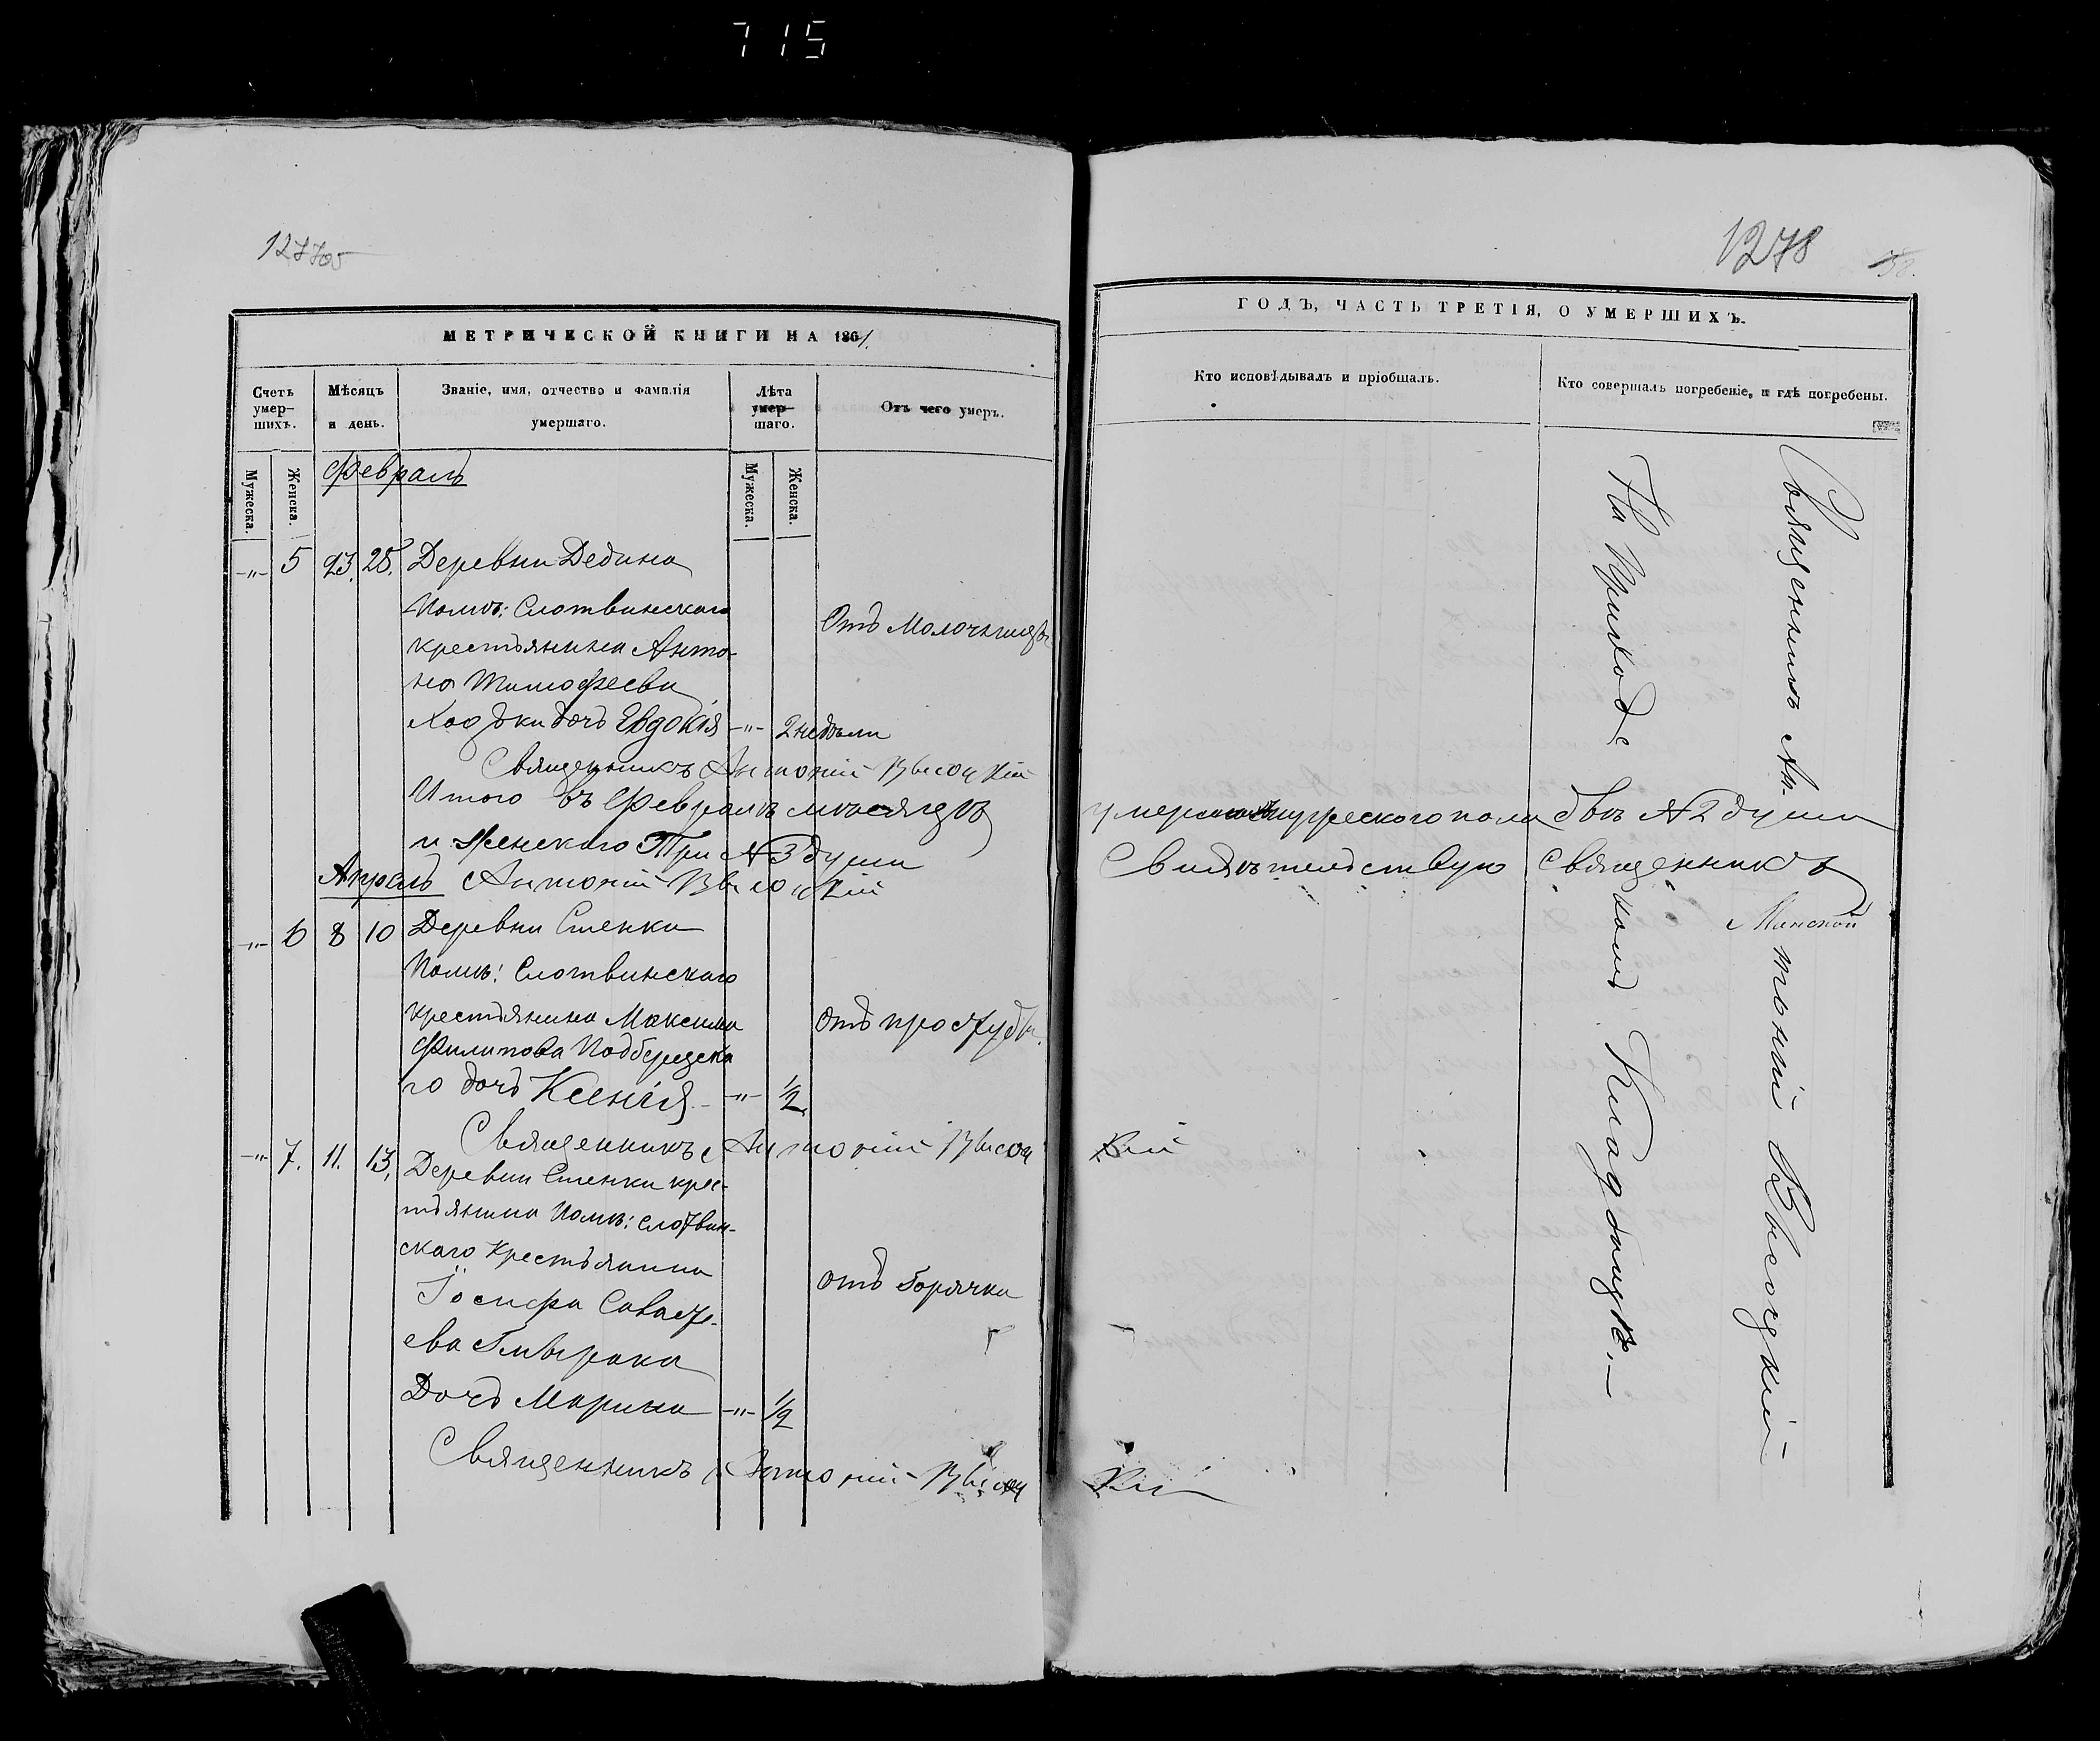 715
1277об
МЕТРИЧЕСКОЙ КНИГИ НА 1861.
Счетъ умер-шихъ.
Мѣсяцъ и день.
Званіе, имя, отчество и фамилія умершаго.
Лѣта умер-шаго.
Отъ чего умеръ.
Мужеска.
Женска.
Мужеска.
Женска.
Февраль
-"- 5 23. 25. Деревни Дедина
Помѣ: Слотвинскаго
крестьянина Анто-
на Тимофеева
Отъ Молочницы
Ходьки дочь Евдокія -"- 2 недѣли
Священникъ Антоній Высоцкій
Итого въ Февралѣ мѣсяцѣ
и женскаго Три №3 души
Апрель Антоній Высоцкій
-"- 6 8 10 Деревни Стенки
Помѣ: Слотвинскаго
крестьянина Максима
Отъ простуды.
Филипова Подберезска
го дочь Ксенія -"- 1/2
Священникъ Антоній Высоц
-"- 7. 11. 13. Деревни Стенки крес-
тьянина Помѣ: Слотвин-
скаго Крестьянина
Іосифа Савастѣ-
Отъ Горячки
ева
Дочь Марина -"- 1/2
Священникъ Антоній Высоц
1278
ГОДЪ, ЧАСТЬ ТРЕТІЯ, О УМЕРШИХЪ.
Кто исповѣдывалъ и пріобщалъ.
Кто совершалъ погребеніе, и гдѣ погребены.
На Приходс
комъ Кладбищѣ.—
Священникъ Ан-
тоній Высоцкій
умерло мужескаго пола двѣ №2 души
Свидѣтельствую священникъ
Минской
кій
кій